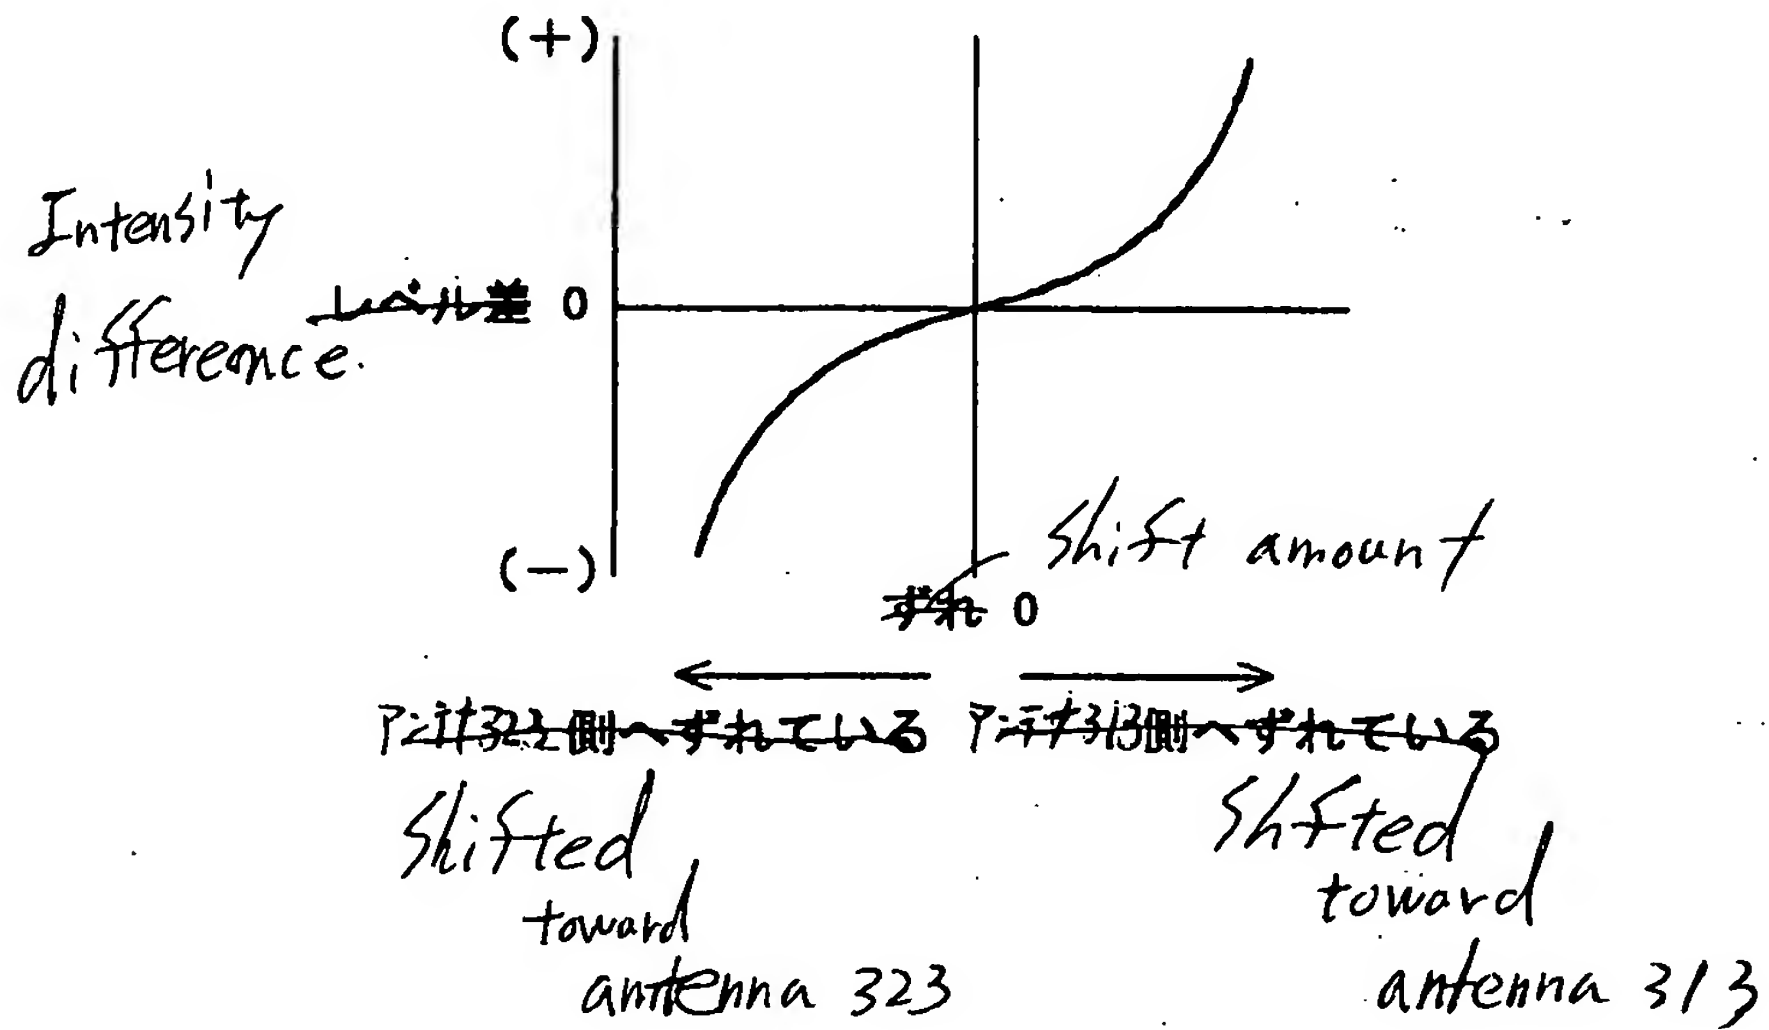 (+)
Intensity
difference.
レベル差 0
(−)
Shift amount
ずれ 0
アンテナ323側へずれている アンテナ313側へずれている
Shifted
toward
antenna 323
Shifted
toward
antenna 313